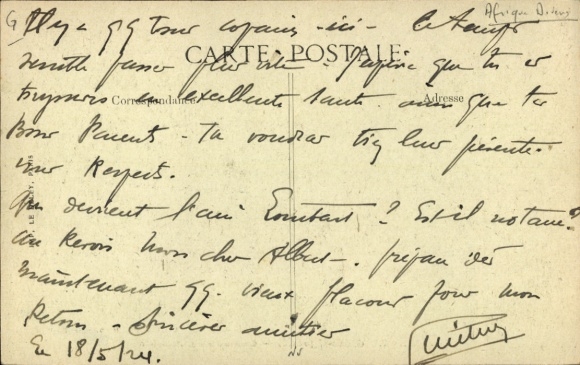 Afrique
Il y a qq bons copains ici - Le temps
CARTE POSTALE
semble passer plus vite - J'espère que tu es
toujours en excellente santé ainsi que tes
Correspondance
Adresse
Bons Parents - Tu voudras bien leur présenter
mes Respects.
Que devient l'ami ? Est-il notaire?
Au Revois mon cher Albert - prépare dès
maintenant qq. vieux flacons pour mon
Retour - Sincères amitiés
Le 18/5/24.